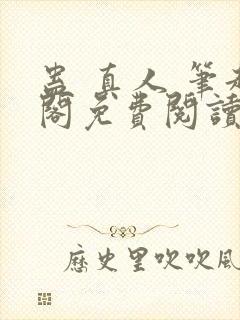 蛊真人 筆
閣免費閱讀
歷史里吹吹風